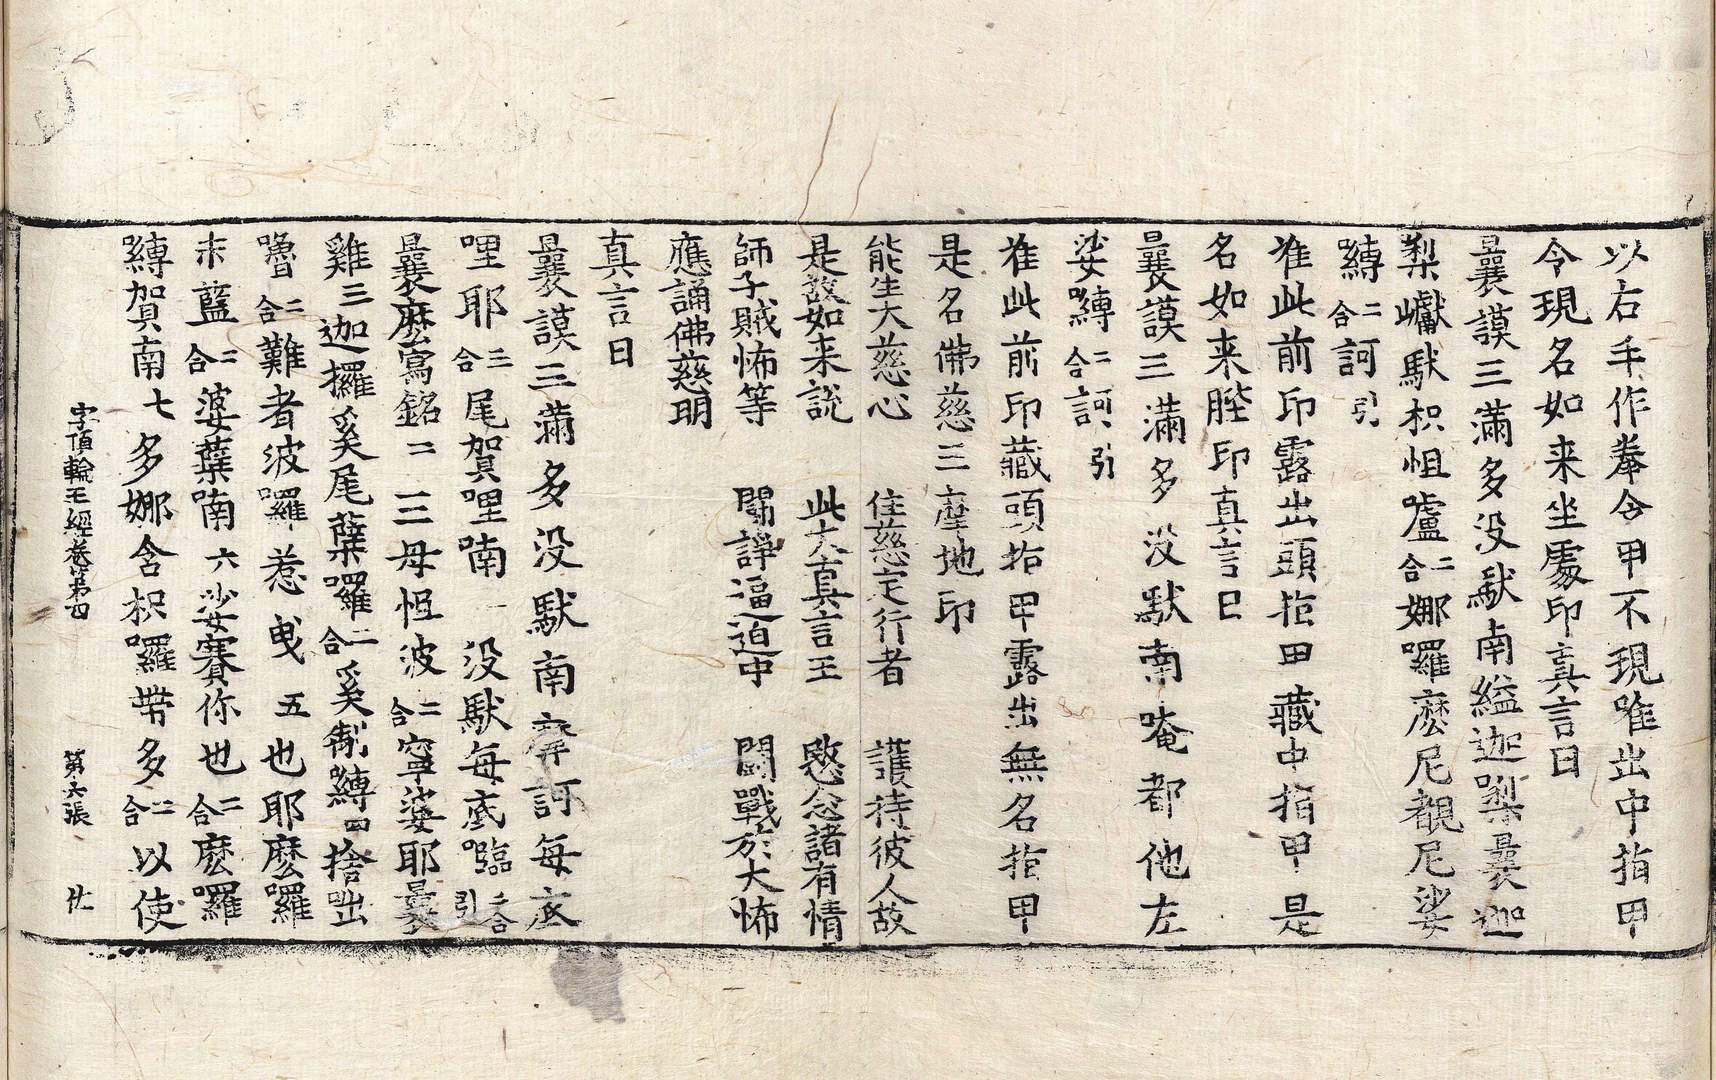 以右手作拳令甲不現唯出中指甲
令現名如来坐處印真言曰
曩謨三滿多没馱南縊迦㗚曩迦
㗚巘馱枳怚嚧二合娜囉麽尼覩尼娑
嚩二合訶引
准此前印露出頭指甲藏中指甲是
名如来䏶印真言曰
曩謨三滿多没馱南唵都他左
娑嚩二合訶引
准此前印藏頭指甲露出無名指甲
是名佛慈三摩地印
能生大慈心　住慈定行者　護持彼人故
是故如来説　此大真言王　愍念諸有情
師子賊怖等　鬪諍逼迫中　鬪戰於大怖
應誦佛慈明
真言曰
曩謨三滿多没馱南摩訶每底
哩耶三合尾賀哩喃一没馱每底㘕三合引
曩麽寫銘二三母怛波二合寧娑耶曩
雞三迦攞奚尾蘖囉二合奚制嚩四捨咄
嚕二合難者波囉惹曳五也耶麽囉
末藍二合婆蘖喃六娑賽你也二合麽囉
嚩賀南七多娜含枳囉帶多二合以使
字頂輪王經卷第四　第六張　仕